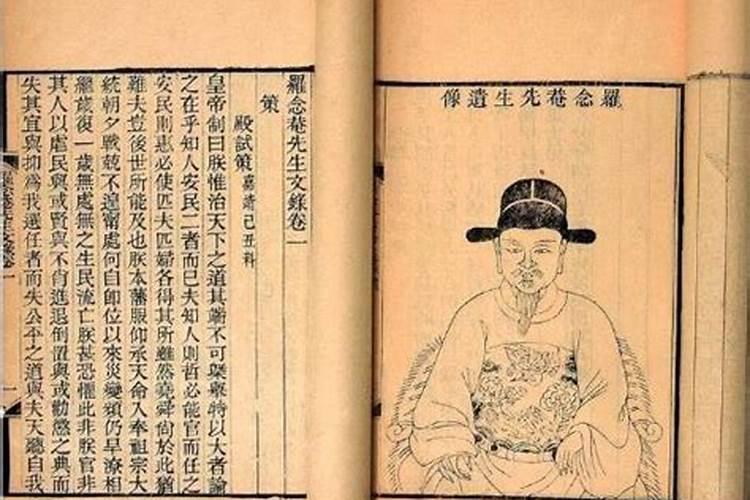 羅念菴先生遺像
羅念菴先生文錄卷一
策
殿試策 嘉靖己丑科
皇帝制曰朕惟治天下之道其端不可槩舉特以大者論
之在乎知人安民二者而已夫知人則哲必能官而任之
安民則惠必使匹夫匹婦各得其所雖然堯舜尚於此猶
難夫豈後世所能及也朕本藩服仰承天命入奉祖宗大
統朝夕戰兢不遑甯處何自卽位以來災變頻仍旱潦相
繼歲復一歲無處無之生民流亡朕甚恐懼此非朕官非
其人以虐民與或賢與不肖進退倒置與或勸懲之典而
失其宜與抑爲我選任者而失公平之道與夫天聽自我